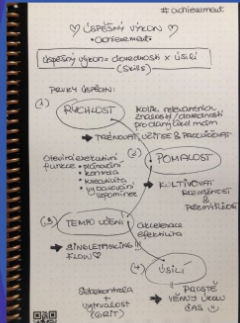 # achievement
♡ ÚSPĚŠNÝ VÝKON ♡
• achievement
úspěšný výkon = dovednosti × úsilí
(skills)
PRVKY ÚSPĚCHU:
(1)
RYCHLOST
Kolik relevantních
znalostí/dovedností
pro daný úkol mám
→ TRÉNOVAT, UČIT SE & PROCVIČOVAT
Otevírá exekutivní
funkce • plánování
• kontrola
• kreativita
• vybavování
vzpomínek
(2)
POMALOST
→ KULTIVOVAT
(3)
TEMPO UČENÍ
akcelerace
efektivita
→ SINGLETASKING !!!
FLOW ♡
(4)
ÚSILÍ
Sebekontrola
+
vytrvalost
(GRIT)
→ PROSTĚ
VĚNUJ ÚKOLU
ČAS